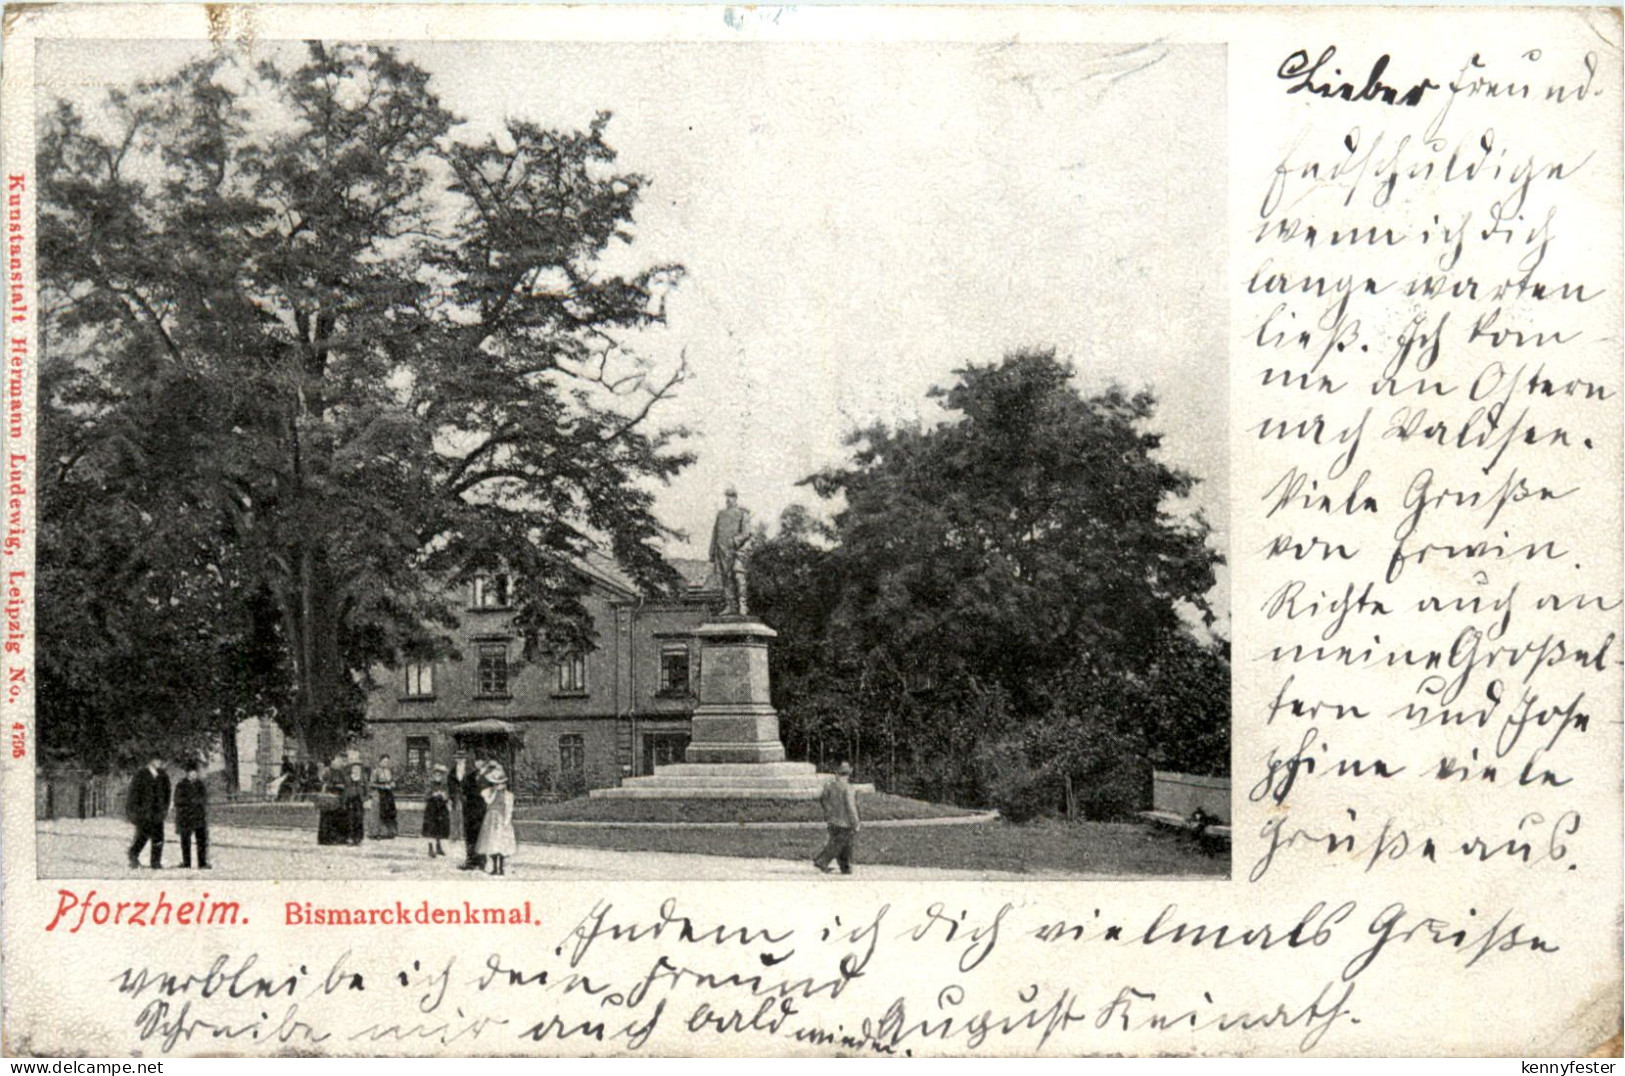 Lieber Freund.
Endschuldige
wenn ich dich
lange warten
ließ. Ich kom-
me an Ostern
nach Waldsee.
Viele Grüße
von Erwin.
Richte auch an
meine Großel-
tern und Jose-
phine viele
Grüße aus.
Kunstanstalt Hermann Ludewig, Leipzig No. 4795
Pforzheim. Bismarckdenkmal.
Indem ich dich vielmals Grüße
verbleibe ich dein Freund
Schreibe mir auch bald wieder. August Keinath.
www.delcampe.net
kennyfester